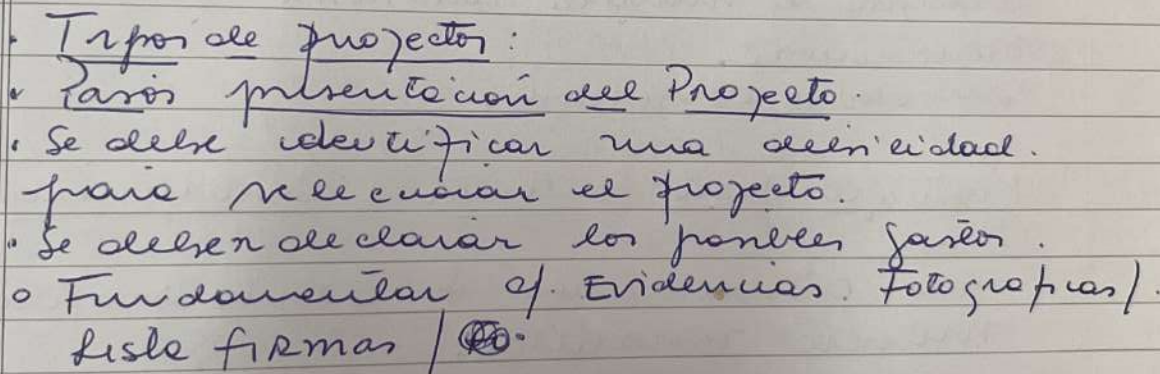 • Tipos de proyectos:
• Pasos presentación del Proyecto.
• Se debe identificar una necesidad.
para seleccionar el proyecto.
• Se deben declarar los posibles gastos.
• Fundamentar c/. Evidencias. Fotograficas/.
Lista firmas /